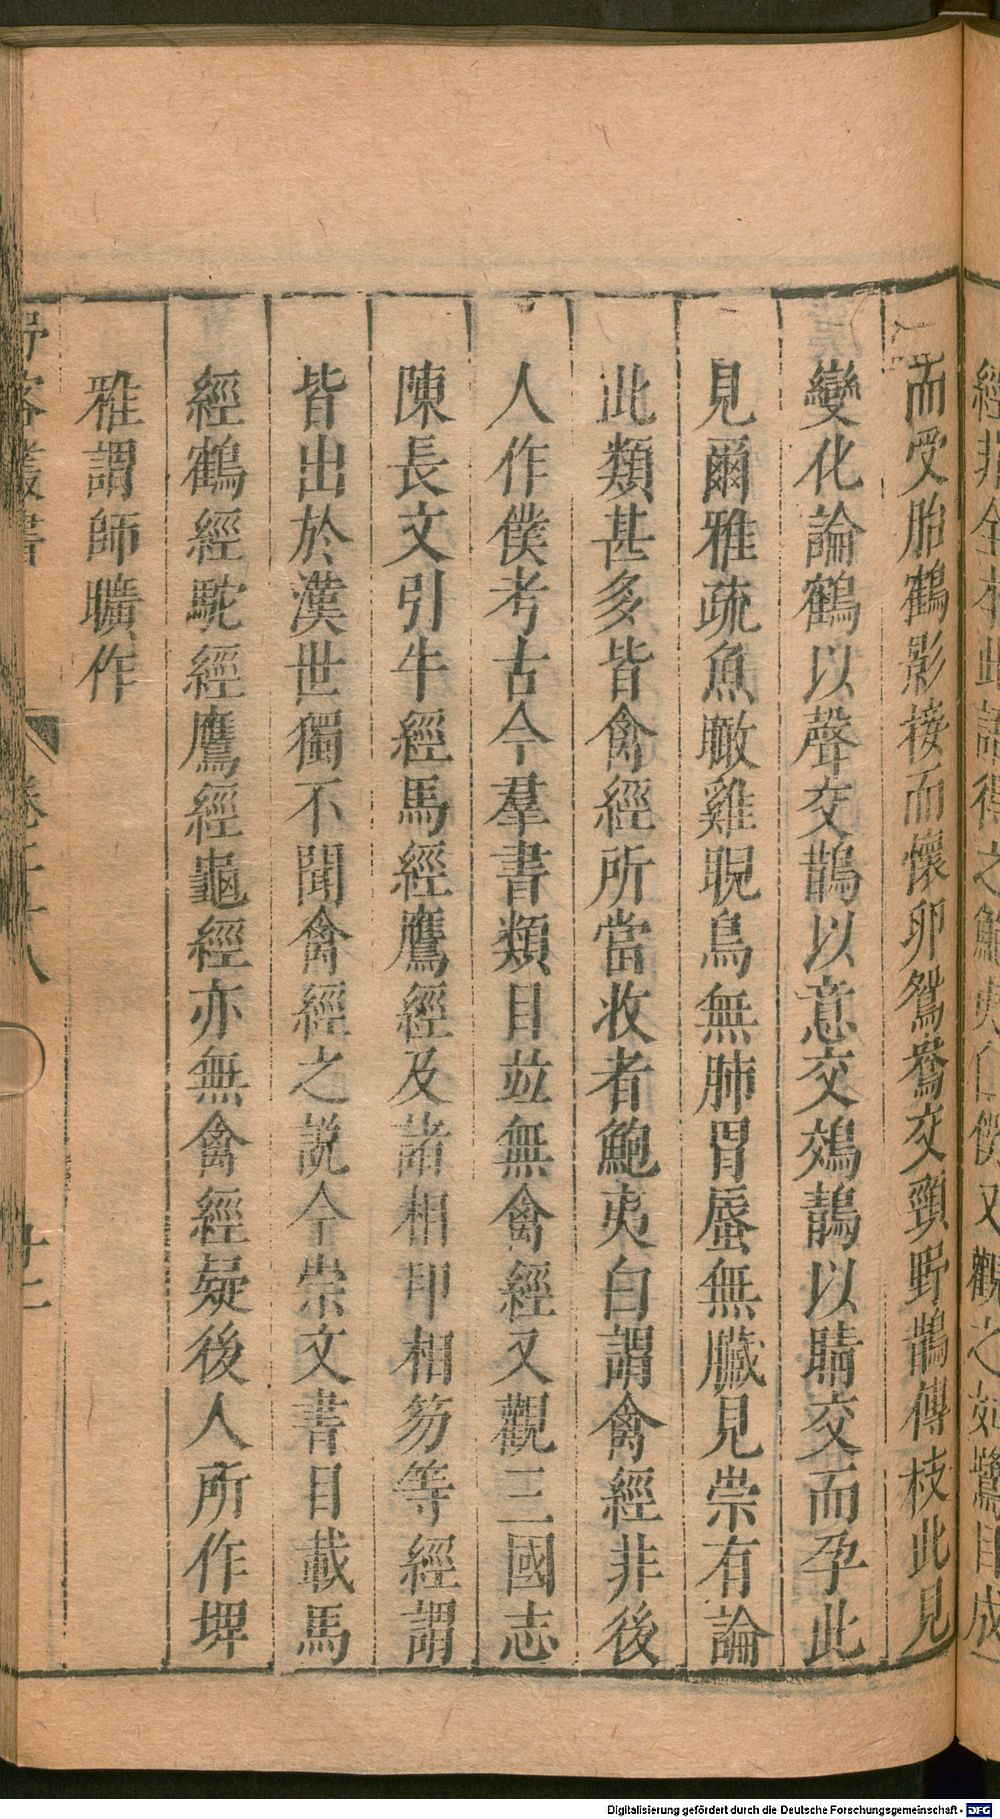 而受胎鶴影接而懷卵鴛鴦交頸野鵲傳枝此見
變化論鶴以聲交鵲以意交鵁鶄以睛交而孕此
見爾雅疏魚瞰雞睨鳥無肺胃蜃無臟見崇有論
此類甚多皆禽經所當收者鮑夷白謂禽經非後
人作僕考古今羣書類目並無禽經又觀三國志
陳長文引牛經馬經鷹經及諸相印相笏等經謂
皆出於漢世獨不聞禽經之說今崇文書目載馬
經鶴經駝經鷹經龜經亦無禽經疑後人所作埤
雅謂師曠作
卷二十八
Digitalisierung gefördert durch die Deutsche Forschungsgemeinschaft - DFG